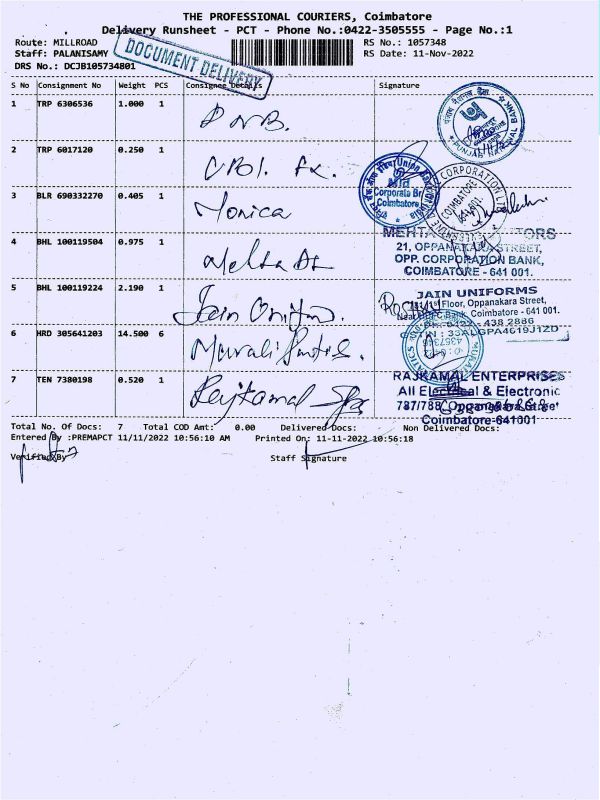 THE PROFESSIONAL COURIERS, Coimbatore
Delivery Runsheet - PCT - Phone No.:0422-3505555 - Page No.:1
Route: MILLROAD
Staff: PALANISAMY
DRS No.: DCJB105734801
DOCUMENT DELIVERY
RS No.: 1057348
RS Date: 11-Nov-2022
S No Consignment No Weight PCS Consignee Details Signature
1 TRP 6306536 1.000 1
PNB.
PUNJAB NATIONAL BANK
2 TRP 6017120 0.250 1
Union Bank of India
Mid Corporate Br
Coimbatore
3 BLR 690332270 0.405 1 Monica
CORPORATION
COIMBATORE
641 001
4 BHL 100119504 0.975 1
21, OPPANAKARA STREET,
OPP. CORPORATION BANK,
COIMBATORE - 641 001.
5 BHL 100119224 2.190 1 Jain
JAIN UNIFORMS
1st Floor, Oppanakara Street,
Bank, Coimbatore - 641 001.
438 2886
6 HRD 305641203 14.500 6 Murali
7 TEN 7380198 0.520 1 Rajkamal
RAJKAMAL ENTERPRISES
All Electrical & Electronic
787/788, Oppanakara Street
Coimbatore-641001
Total No. Of Docs: 7 Total COD Amt: 0.00 Delivered Docs: Non Delivered Docs:
Entered By :PREMAPCT 11/11/2022 10:56:10 AM Printed On: 11-11-2022 10:56:18
Verified By
Staff Signature